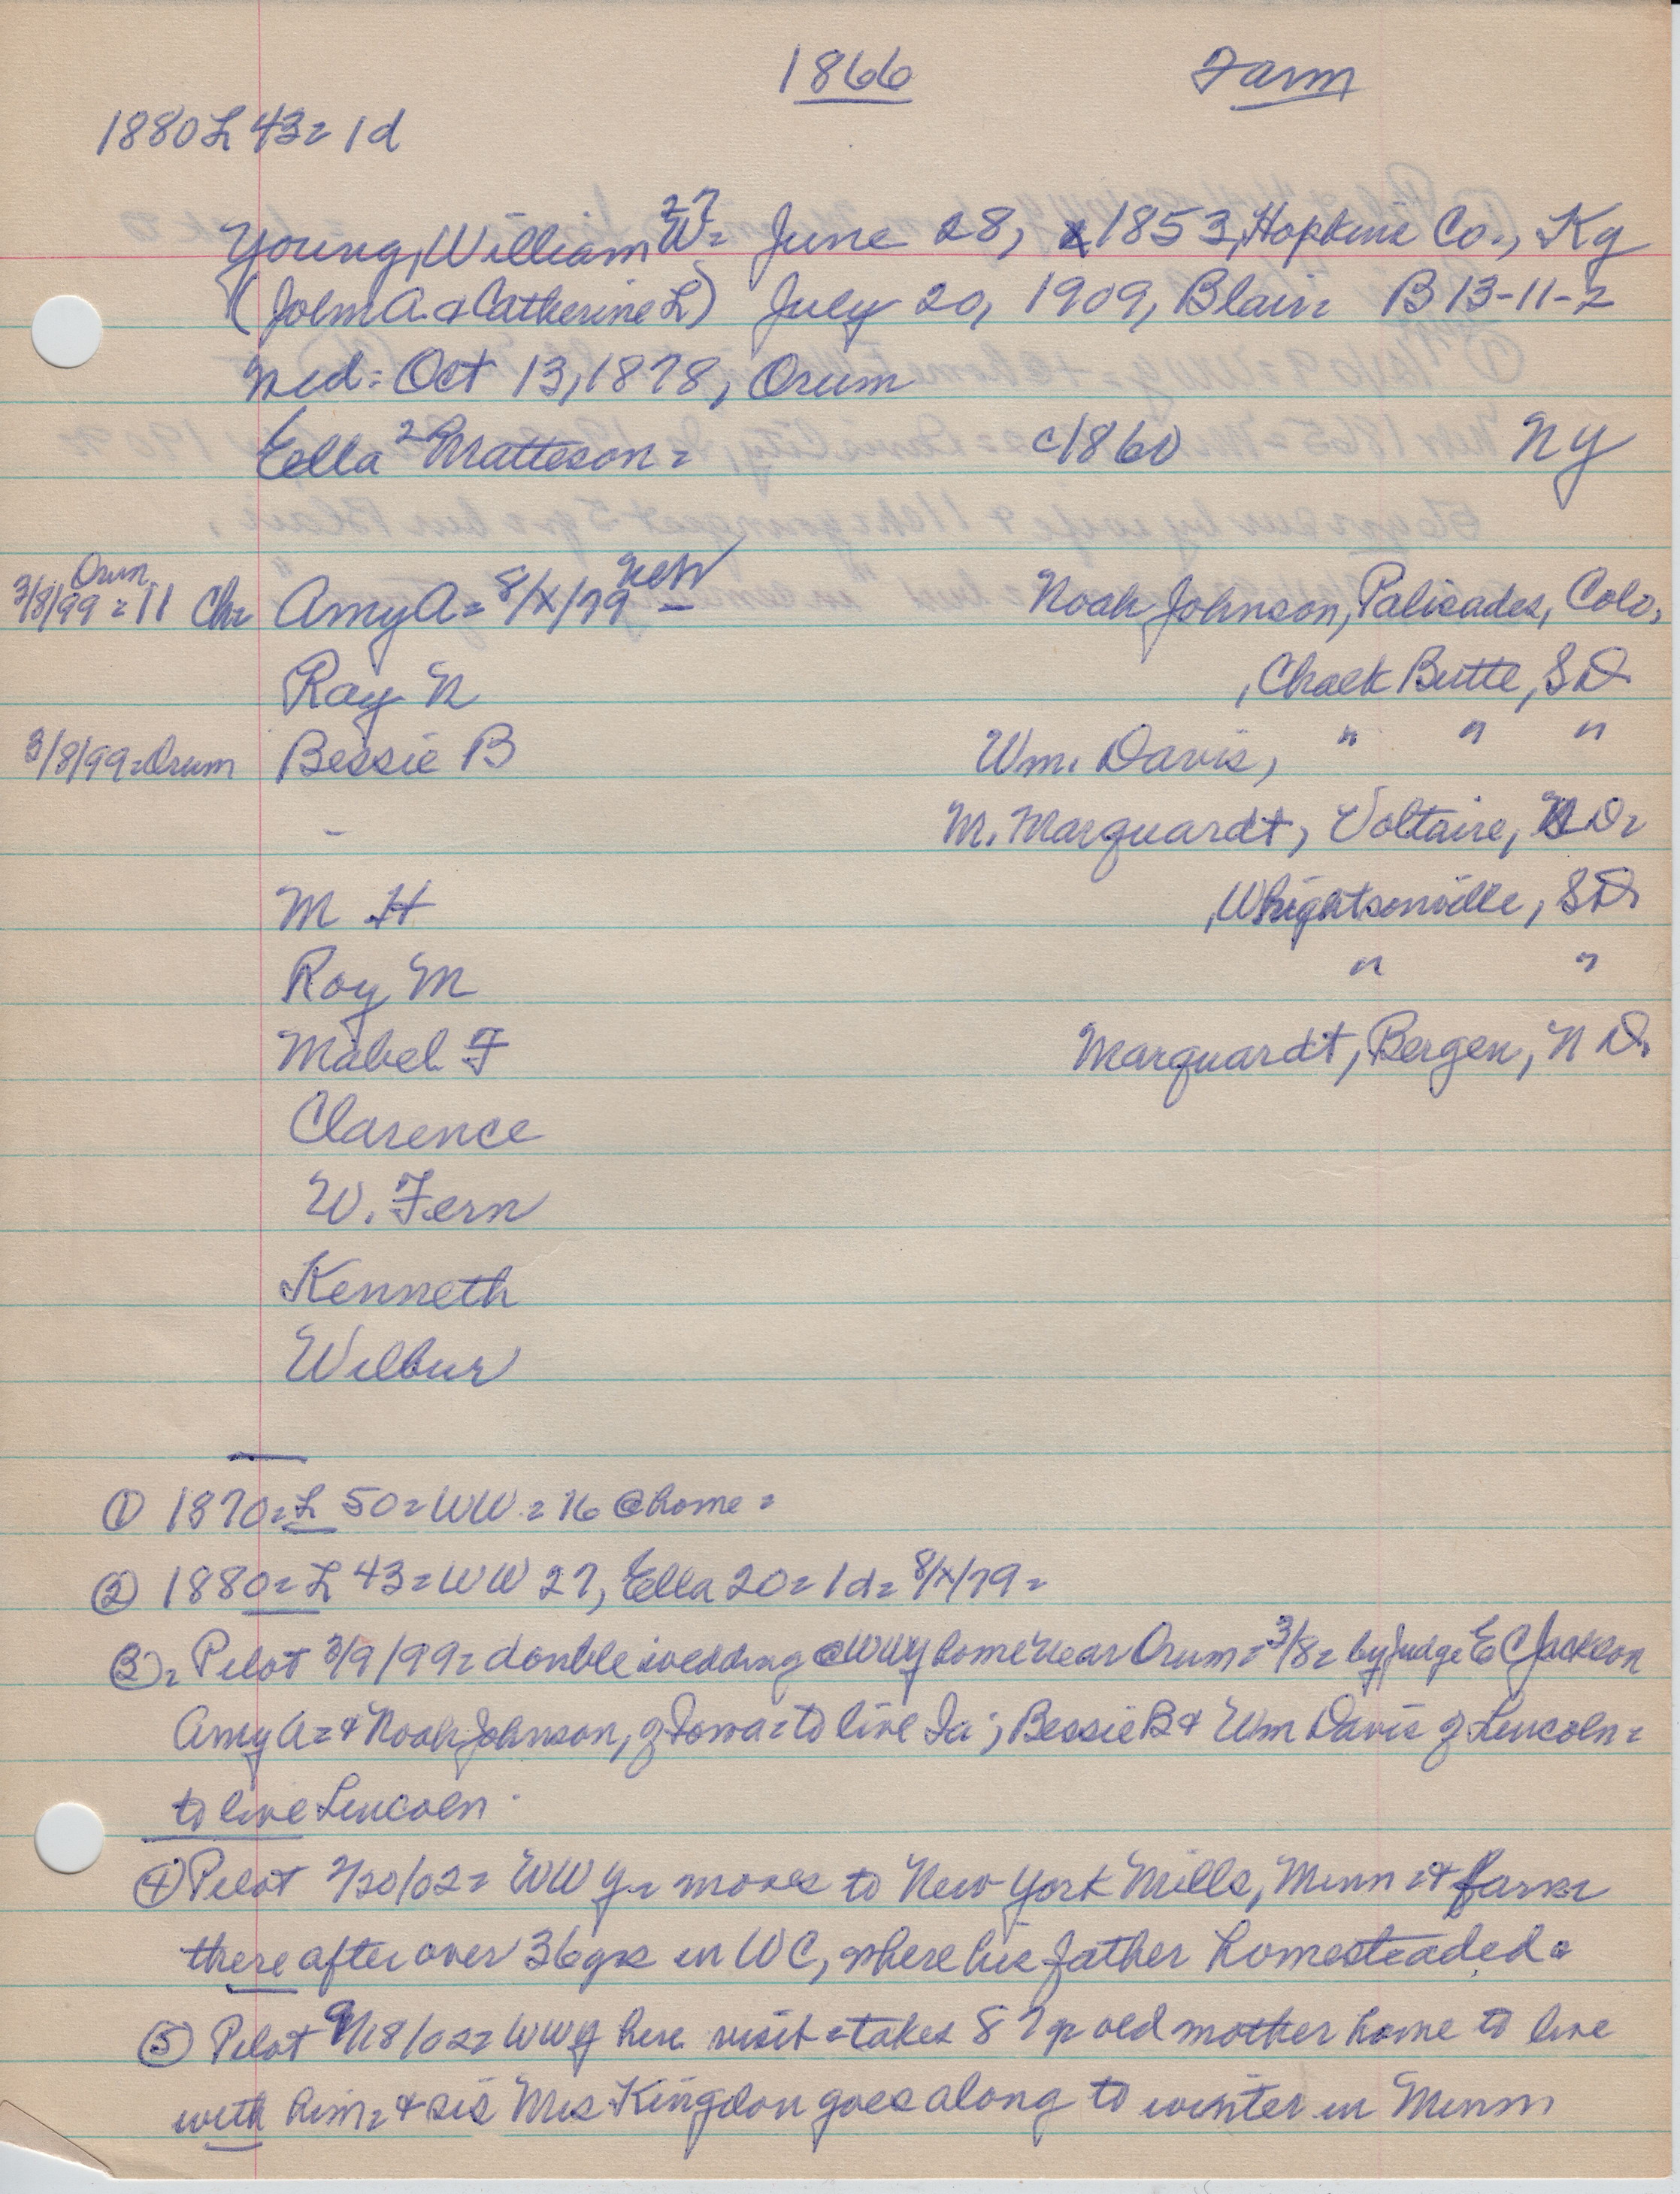 1866 Farm
1880 L 43 = 1d
27
Young, William W = June 28, 1853, Hopkins Co., Ky
(John A. & Catherine L) July 20, 1909, Blair = B 13-11-2
Med: Oct 13, 1878, Orum
Ella Matteson = c1860 NY
Orum
3/8/99 = 11 Ch = Amy A = 8/x/79 Neb Noah Johnson, Palisades, Colo,
Ray N , Chalk Butte, SD
3/8/99 = Orum Bessie B Wm. Davis, " " "
- M. Marquardt, Voltaire, ND =
M H , Whightsonville, SD
Roy M " "
Mabel F Marquardt, Bergen, N D.
Clarence
W. Fern
Kenneth
Wilbur
① 1870 = L 50 = WW = 16 @ home =
② 1880 = L 43 = WW 27, Ella 20 = 1d = 8/x/79 =
③ = Pilot 3/9/99 = double wedding @ WWY home near Orum = 3/8 = by Judge E C Jackson
Amy A = & Noah Johnson, of Iowa = to live Ia ; Bessie B & Wm Davis of Lincoln =
to live Lincoln
④ Pilot 7/30/02 = WW Y = moves to New York Mills, Minn = & farm =
there after over 36 yrs in WC, where his father homesteaded =
⑤ Pilot 9/18/02 = WWY here visit = takes 87 yr old mother home to live
with him = & sis Mrs Kingdon goes along to winter in Minn